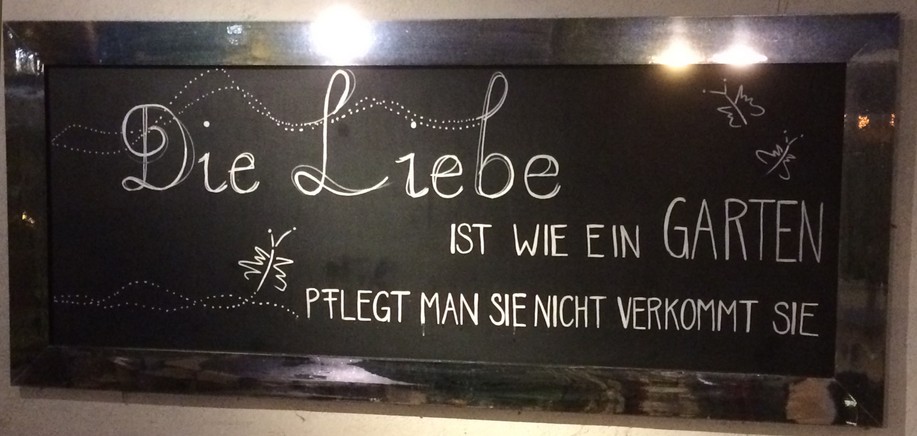 Die Liebe
IST WIE EIN GARTEN
PFLEGT MAN SIE NICHT VERKOMMT SIE